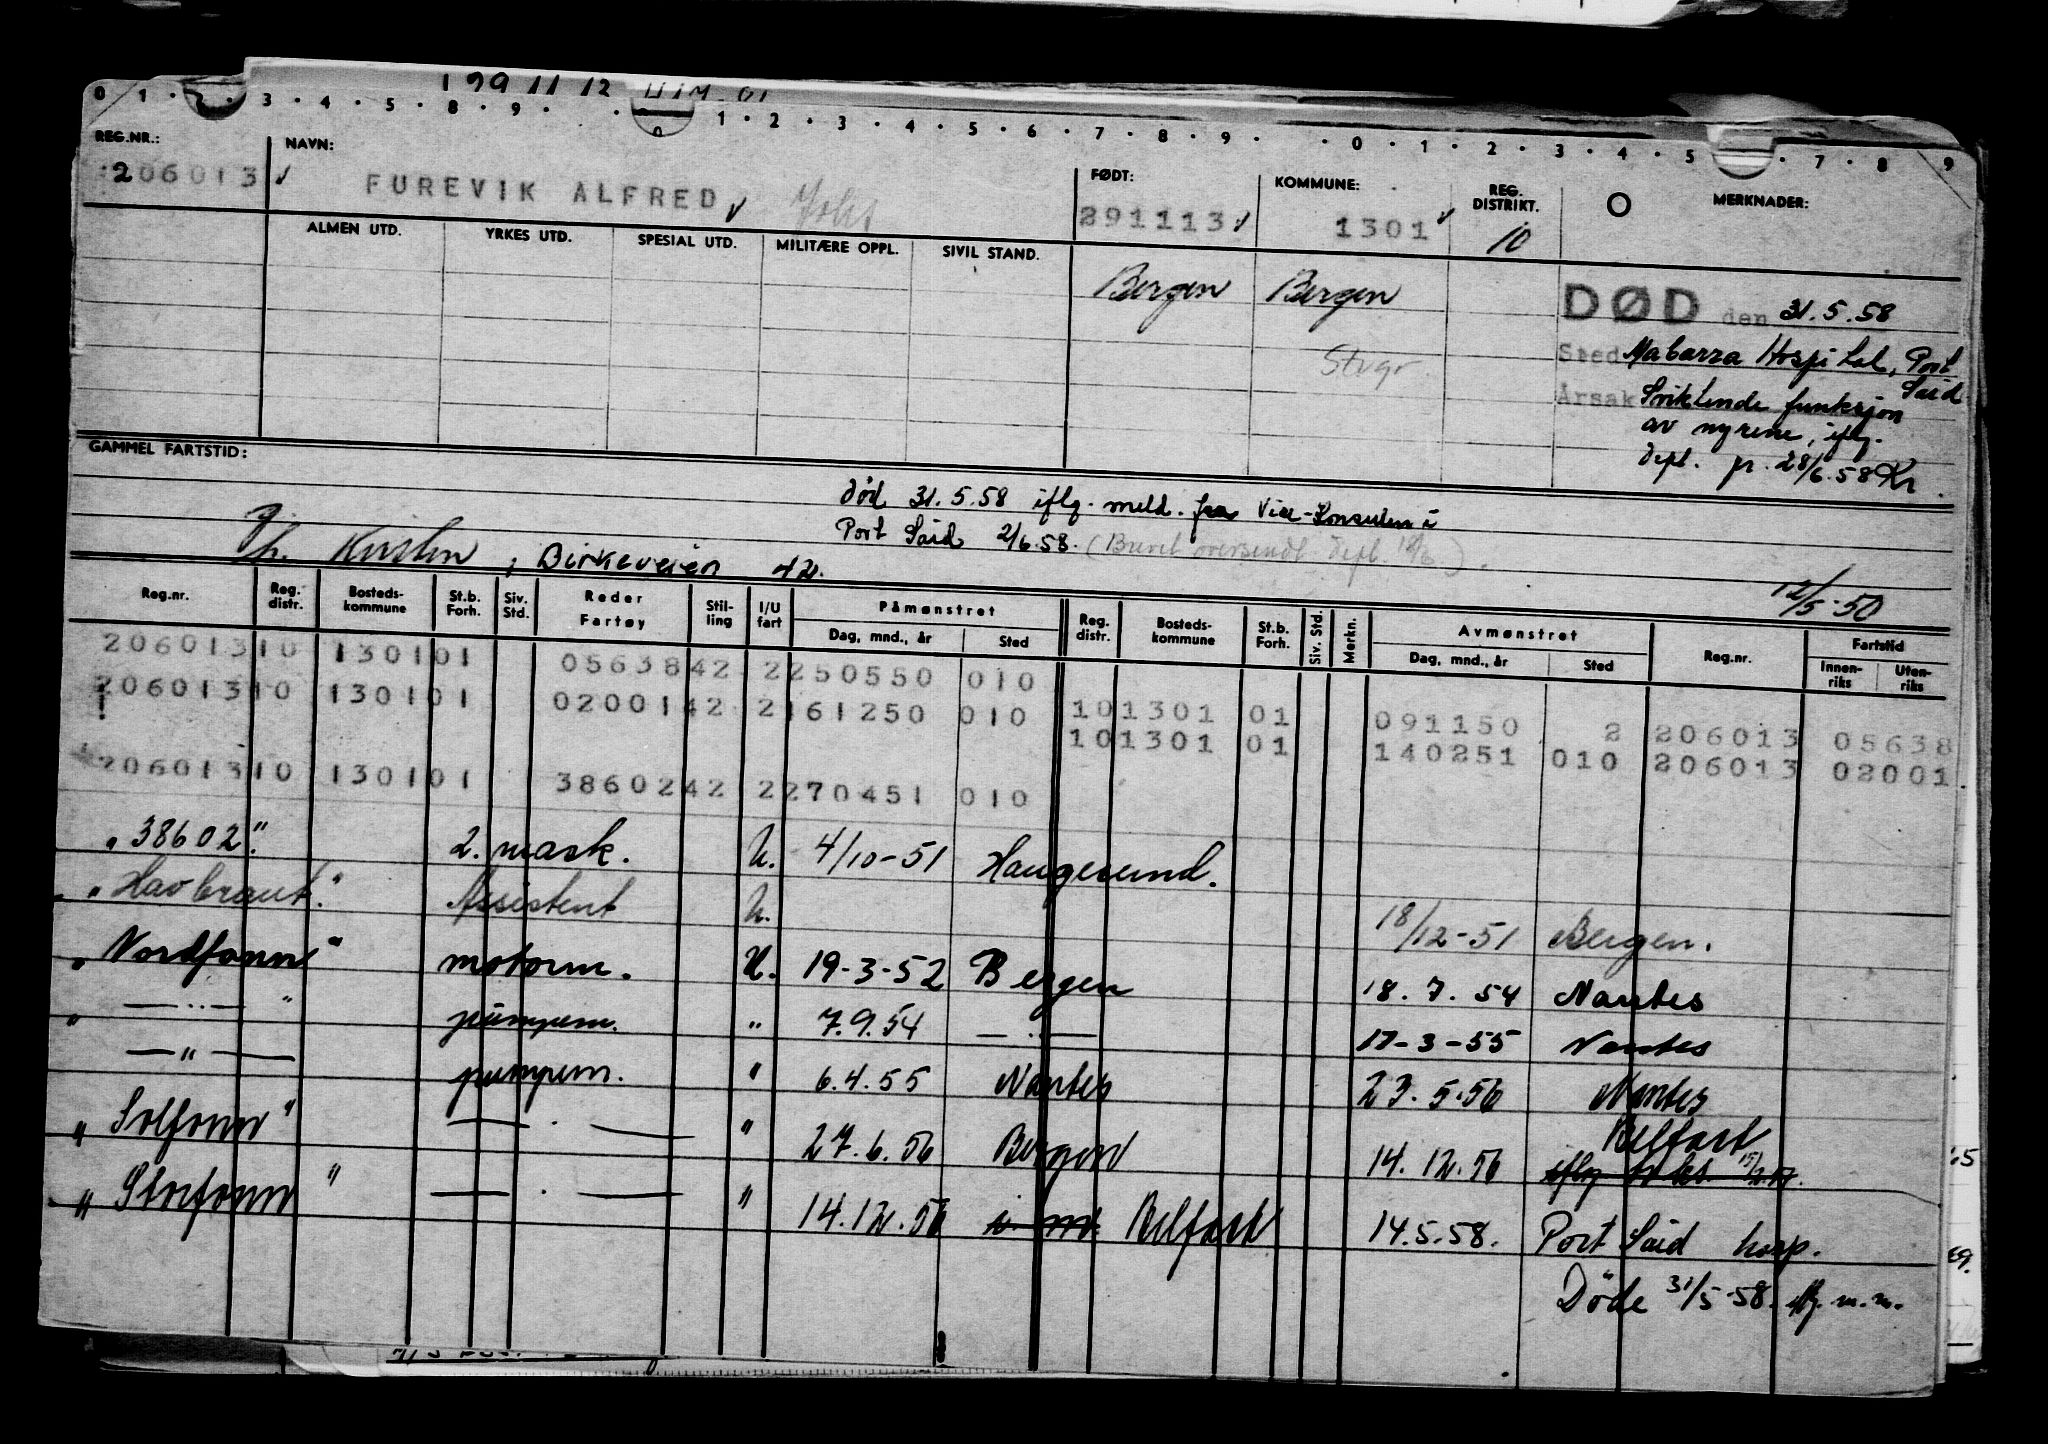 0 1 · 2 · 3 · 4 · 5 · 8 · 9 · · 0 1 · 2 · 3 · 4 · 5 · 6 · 7 · 8 · 9 · · 0 · 1 · 2 · 3 · 4 · 5 7 · 8 9
REG.NR.: NAVN: FØDT: KOMMUNE: REG. DISTRIKT. MERKNADER:
206013 FUREVIK ALFRED 291113 1301 10
ALMEN UTD. YRKES UTD. SPESIAL UTD. MILITÆRE OPPL. SIVIL STAND.
Bergen Bergen
Stvgr.
DØD den 31.5.58
Sted Mabarra Hospital, Port Said
Årsak Sviktende funksjon
av nyrene, iflg.
dept. pr. 28/6.58 Kr.
GAMMEL FARTSTID:
død 31.5.58 iflg. meld. fra Vise-Konsulen i
Port Said 2/6.58. (Brevet oversendt Dept.
Kirsten, Birkeveien 42. 12/5-50
Reg.nr. Reg. distr. Bosteds-kommune St.b. Forh. Siv. Std. Reder Fartøy Stil-ling I/U fart Påmønstret Dag, mnd., år Sted Reg. distr. Bosteds-kommune St.b. Forh. Siv. Std. Merkn. Avmønstret Dag, mnd., år Sted Reg.nr. Fartstid Innen-riks Uten-riks
20601310 130101 0563842 2250550 010
20601310 130101 0200142 2161250 010 101301 01 091150 2 206013 05638
101301 01 140251 010 206013 02001
20601310 130101 3860242 2270451 010
"38602" 2. mask. U. 4/10-51 Haugesund.
"Havbraut." Assistent U. 18/12-51 Bergen.
"Nordfonn" motorm. U. 19-3-52 Bergen 18.7.54 Nantes
" — " — " pumpem. " 7.9.54 — . — 17-3-55 Nantes
— " — pumpem. " 6.4.55 Nantes 23.5.56 Nantes
"Solfonn" — . — " 27.6.56 Bergen 14.12.56 Belfast
"Storfonn" — . — " 14.12.56 Belfast 14.5.58. Port Said hosp.
Døde 31/5-58. iflg. m.m.